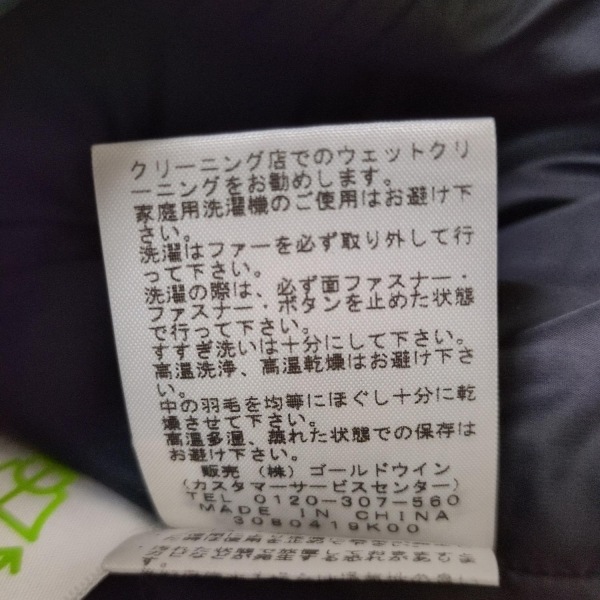 クリーニング店でのウェットクリ
ーニングをお勧めします。
家庭用洗濯機のご使用はお避け下
さい。
洗濯はファーを必ず取り外して行
って下さい。
洗濯の際は、必ず面ファスナー・
ファスナー・ボタンを止めた状態
で行って下さい。
すすぎ洗いは十分にして下さい。
高温洗浄、高温乾燥はお避け下さ
い。
中の羽毛を均等にほぐし十分に乾
燥させて下さい。
高温多湿、蒸れた状態での保存は
お避け下さい。
販売 (株) ゴールドウイン
(カスタマーサービスセンター)
TEL 0120-307-560
MADE IN CHINA
3080419K00